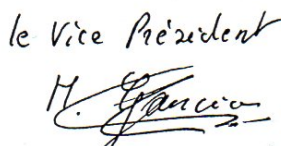 le Vice Président
M. Garcia